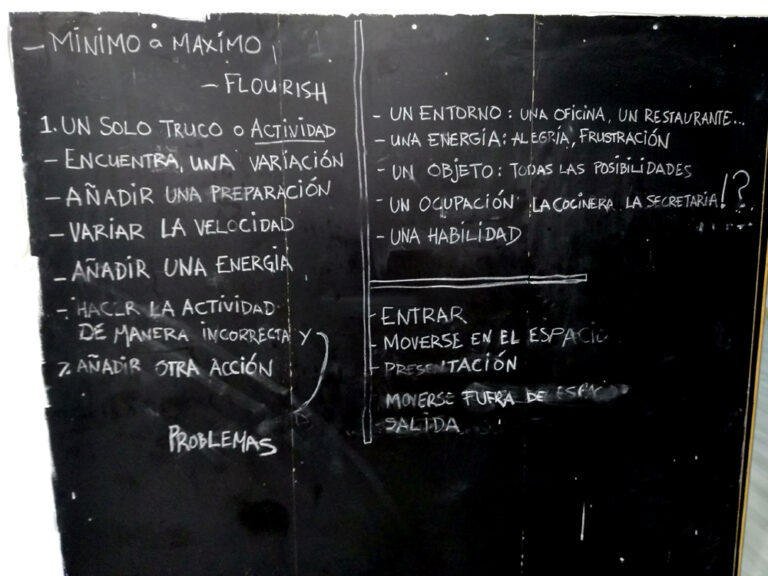 - MINIMO a MAXIMO
- FLOURISH
1. UN SOLO TRUCO o ACTIVIDAD
- ENCUENTRA, UNA VARIACIÓN
- AÑADIR UNA PREPARACIÓN
- VARIAR LA VELOCIDAD
- AÑADIR UNA ENERGÍA
- HACER LA ACTIVIDAD
DE MANERA INCORRECTA Y
2. AÑADIR OTRA ACCIÓN
PROBLEMAS
- UN ENTORNO: UNA OFICINA, UN RESTAURANTE...
- UNA ENERGÍA: ALEGRÍA, FRUSTRACIÓN
- UN OBJETO: TODAS LAS POSIBILIDADES
- UN OCUPACIÓN LA COCINERA LA SECRETARIA!?
- UNA HABILIDAD
- ENTRAR
- MOVERSE EN EL ESPACIO
- PRESENTACIÓN
MOVERSE FUERA DE ESPA
SALIDA